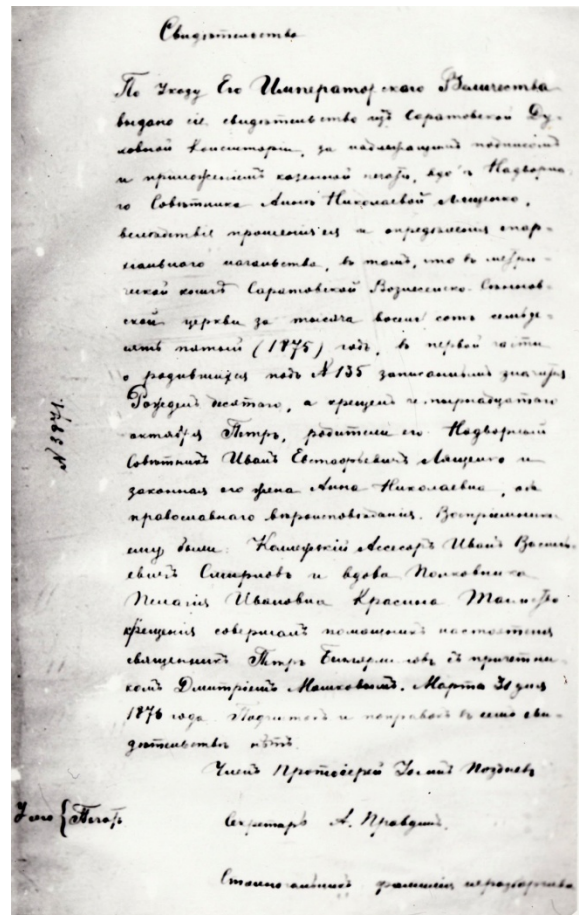 Свидѣтельство
По Указу Его Императорскаго Величества
выдано сіе свидѣтельство изъ Саратовской Ду-
ховной Консисторіи, за надлежащимъ подписомъ
и приложеніемъ казенной печати, вдовѣ Надворна-
го Совѣтника Аннѣ Николаевой Лященко,
вслѣдствіе прошенія ея и опредѣленія епар-
хіальнаго начальства, въ томъ, что въ метри-
ческой книгѣ Саратовской Вознесенско-Сѣнновс-
ской церкви за тысяча восемь сотъ семьде-
сятъ пятый (1875) годъ, въ первой части
о родившихся подъ № 135 записаннымъ значится
Рожденъ десятаго, а крещенъ четырнадцатаго
октября Петръ, родители его: Надворный
Совѣтникъ Иванъ Евстафьевичъ Лященко и
законная его жена Анна Николаевна, оба
православнаго вѣроисповѣданія. Воспріемники
ему были: Коллежскій Ассесоръ Иванъ Василь-
евичъ Смирновъ и вдова Полковника
Пелагія Ивановна Красина Таинство
крещенія совершалъ помощникъ настоятеля
священникъ Петръ с причетни-
комъ Дмитріемъ Машковымъ. Марта 31 дня
1876 года. Подчистокъ и поправокъ въ семъ сви-
дѣтельствѣ нѣтъ.
Членъ Протоіерей Позднев
Секретарь А. Правдинъ.
Столоначальникъ фамилия неразборчива
У сего { Печать
№ 3871.